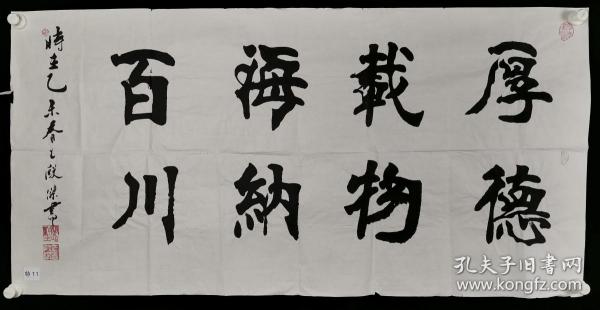 厚德
載物
海納
百川
時在乙未春之
書
特11
孔夫子旧书网
www.kongfz.com